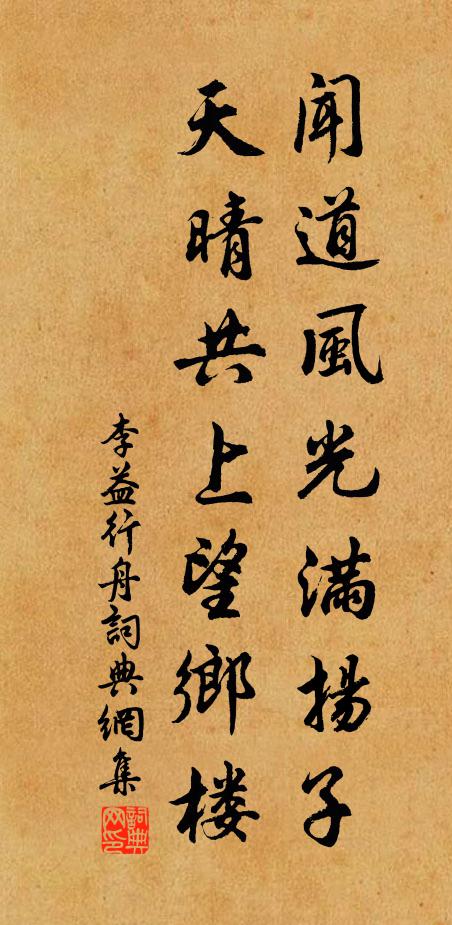 聞道風光滿揚子
天晴共上望鄉楼
李益行舟詞典網集
詞典网印